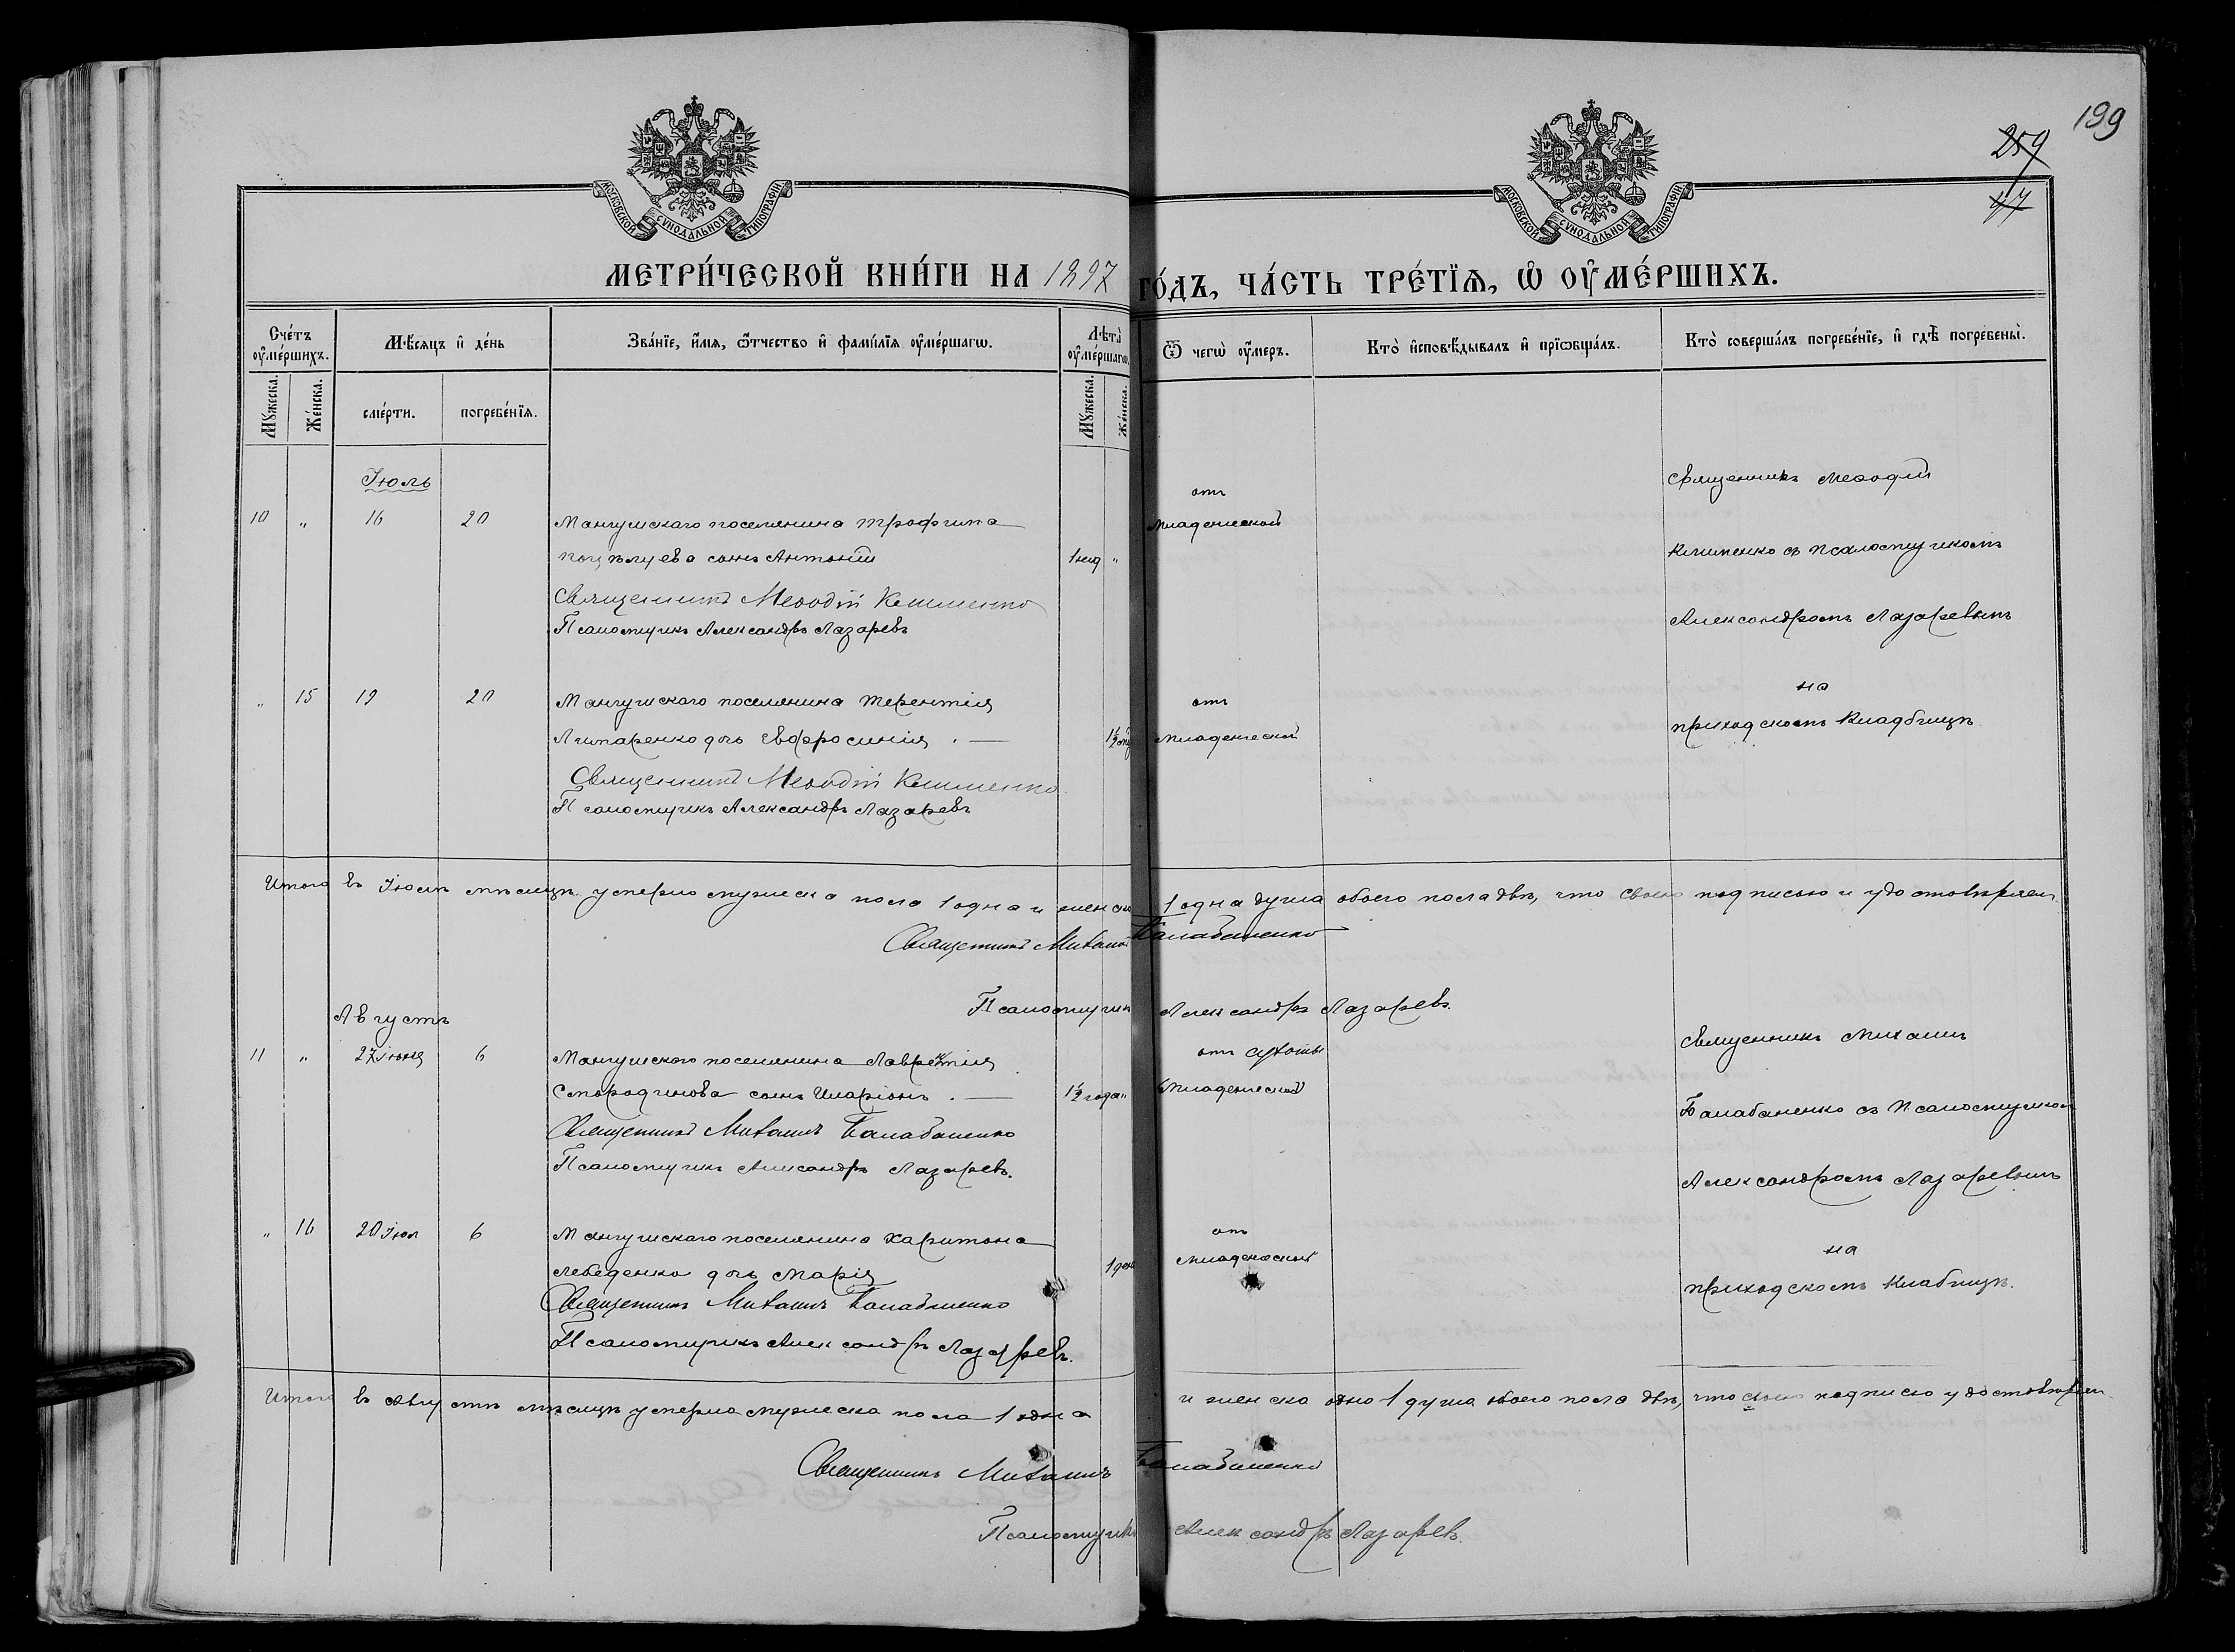 199
259
47
МОСКОВСКОЙ СѴНОДАЛЬНОЙ ТИПОГРАФІИ
МОСКОВСКОЙ СѴНОДАЛЬНОЙ ТИПОГРАФІИ
МЕТРИ́ЧЕСКОЙ КНИ́ГИ НА 1897 ГО́ДЪ, ЧА́СТЬ ТРЕ́ТЇѦ, Ѡ ОУМЕ́РШИХЪ.
Сче́тъ оумéршихъ.
Мꙋ́жеска.
Же́нска.
Мѣ́сяцъ и де́нь
сме́рти.
погребе́нїѧ.
Зва́нїе, и́мѧ, ѻ҆́тчество и фами́лїѧ оуме́ршагѡ.
Лѣта̀ оуме́ршагѡ.
Мꙋ́жеска.
Же́нска.
Ѿ чегѡ̀ оу́меръ.
Кто̀ и҆сповѣ́дывалъ и҆ прїѡбща́лъ.
Кто̀ соверша́лъ погребе́нїе, и҆ гдѣ̀ погребены̀.
Іюль
10 " 16 20 Мангушскаго поселянина Трофима
Поцѣлуева сынъ Антоній 1 нед "
отъ
младенческой
Священникъ Меѳодій Клименко
Псаломщикъ Александръ Лазаревъ
Священникъ Меѳодій
Клименко съ псаломщикомъ
Александромъ Лазаревымъ
на
приходскомъ кладбищѣ
" 15 19 20 Мангушскаго поселянина Терентія
дочь Евфросинія 1½
отъ
младенческой
Священникъ Меѳодій Клименко
Псаломщикъ Александръ Лазаревъ
Итого въ Іюлѣ мѣсяцѣ умерло мужеска пола 1 одна и женска 1 одна душа обоего пола двѣ, что своею подписью и удостовѣряемъ
Священникъ Михаилъ Балабаненко
Псаломщикъ Александръ Лазаревъ.
Августъ
11 " 27 Іюня 6 Мангушскаго поселянина Лаврентія
Смородинова сынъ Иларіонъ 1½ года "
отъ сухоты
младенческой
Священникъ Михаилъ Балабаненко
Псаломщикъ Александръ Лазаревъ.
Священникъ Михаилъ
Балабаненко съ псаломщикомъ
Александромъ Лазаревымъ
на
приходскомъ кладбищѣ.
" 16 20 Іюл 6 Мангушскаго поселянина Харитона
Лебеденко дочь Марія 1 день
отъ
младенческой
Священникъ Михаилъ Балабаненко
Псаломщикъ Александръ Лазаревъ.
Итого въ Августѣ мѣсяцѣ умерло мужеска пола 1 одна и женска одно 1 душа обоего пола двѣ, что своею подписю удостовѣряемъ
Священникъ Михаилъ Балабаненко
Псаломщикъ Александръ Лазаревъ.